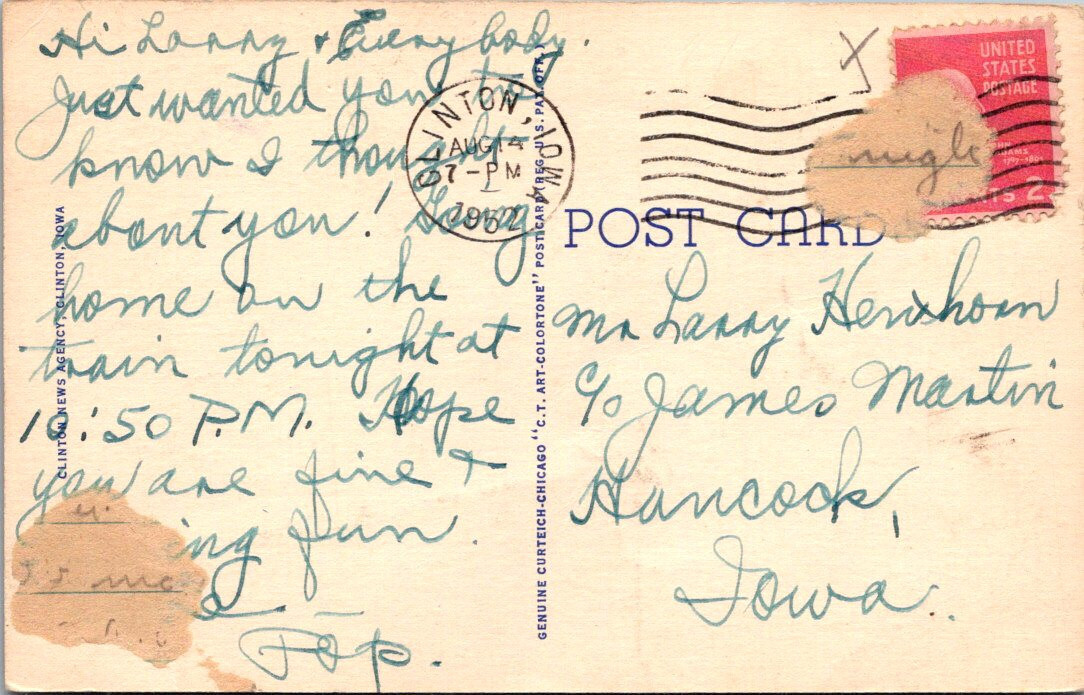 Hi Larry + Everybody.
Just wanted you to
know I thought
about you! Going
home on the
train tonight at
10:50 P.M. Hope
you are fine +
ing fun.
Pop.
CLINTON NEWS AGENCY, CLINTON, IOWA
GENUINE CURTEICH-CHICAGO "C.T. ART-COLORTONE" POST CARD (REG. U.S. PAT. OFF.)
CLINTON, IOWA
AUG 14
7-PM
1952
UNITED
STATES
POSTAGE
2
POST CARD
Mr Larry Henxhorn
c/o James Martin
Hancock,
Iowa.